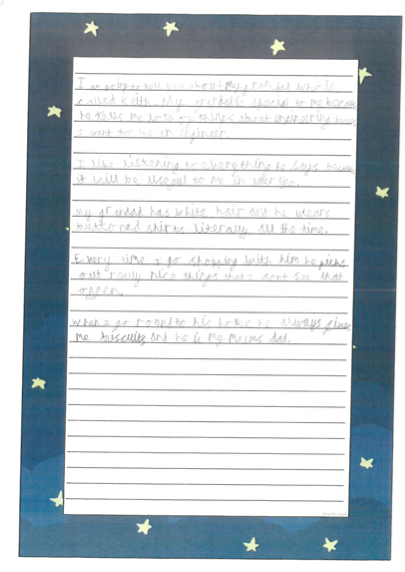 I am going to tell you about my grandad who is
called Keith. My grandad is special to me because
he tells me lots of things about engineering
I want to be an engineer.
I like listening to everything he says because
it will be useful to me in
My grandad has white hair and he wears
buttoned shirts literally all the time.
Every time I go shopping with him he picks
out really nice things that I dont see that
offen.
When I go round to his house he always gives
me biscuits and he is my mums dad.